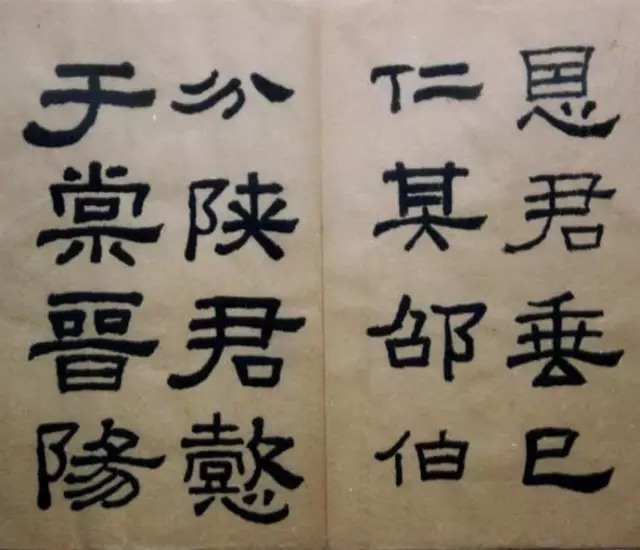 恩君垂巳
仁其邵伯
分陕君懿
于棠晉陽